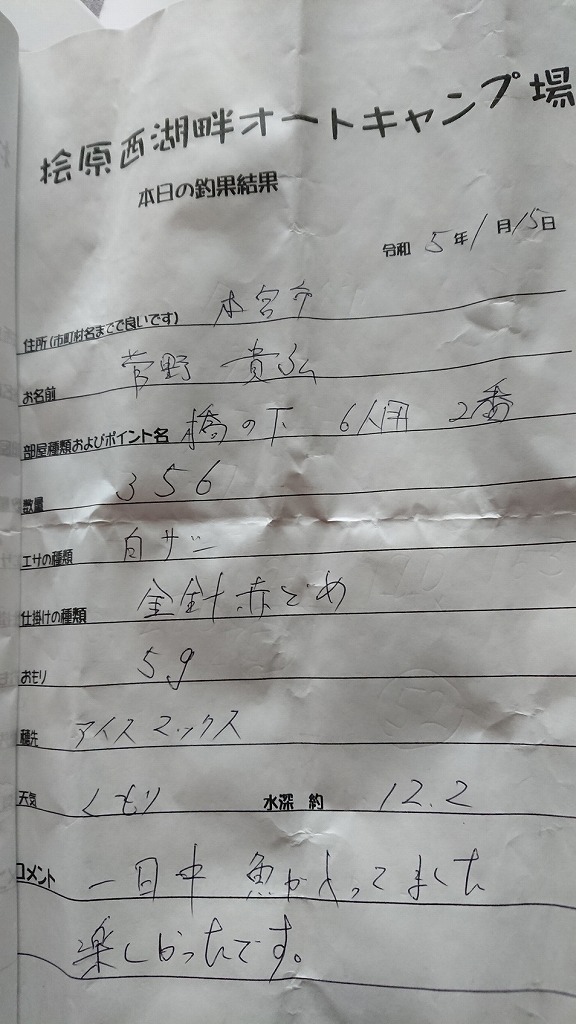 桧原西湖畔オートキャンプ場
本日の釣果結果
令和 5年 1月 15日
住所(市町村名までで良いです) 本宮市
お名前 菅野 貴弘
部屋種類およびポイント名 橋の下 6人用 2番
数量 356
エサの種類 白サシ
仕掛けの種類 金針赤どめ
おもり 5g
穂先 アイスマックス
天気 くもり 水深 約 12.2
コメント 一日中 魚が入ってました
楽しかったです。